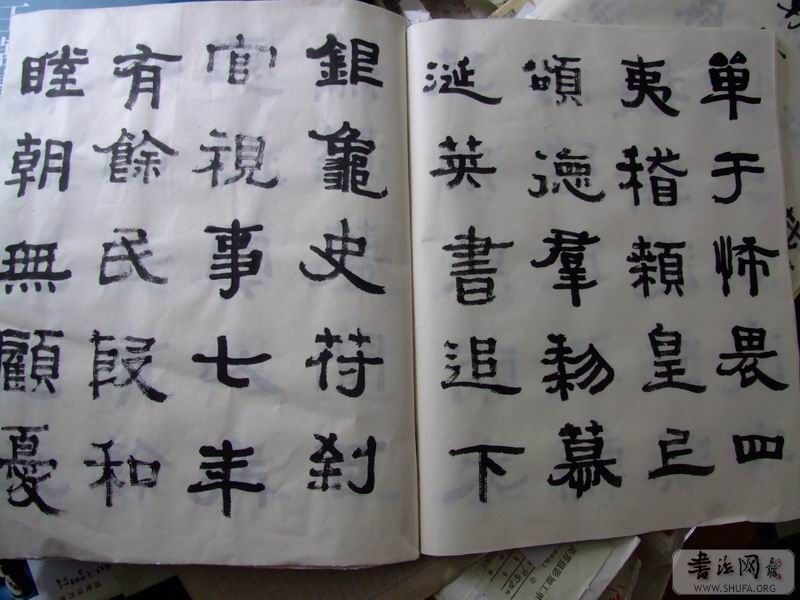 单于怖畏四
夷稽顙皇上
頌德羣黎慕
涎英書追下
銀龜史符到
官視事七年
有餘民殷和
睦朝無顧憂
書法网
WWW.SHUFA.ORG